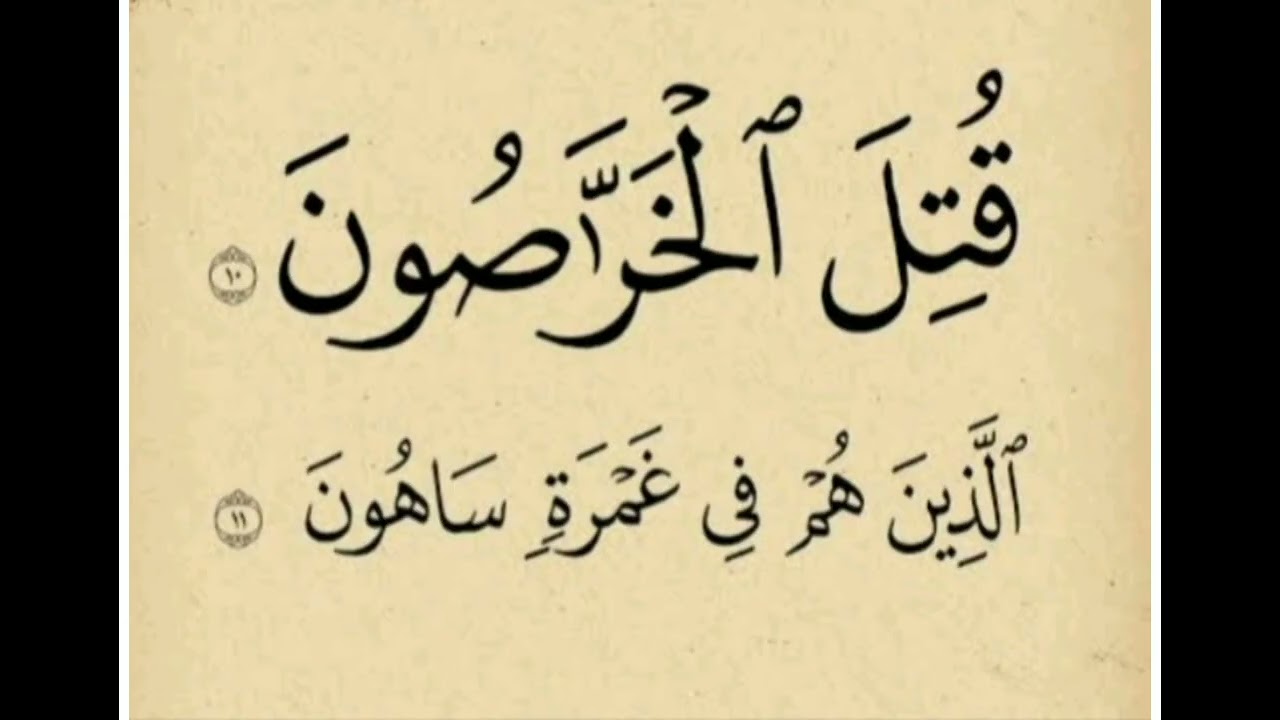 قُتِلَ ٱلْخَرَّاصُونَ ١٠
ٱلَّذِينَ هُمْ فِي غَمْرَةٍ سَاهُونَ ١١